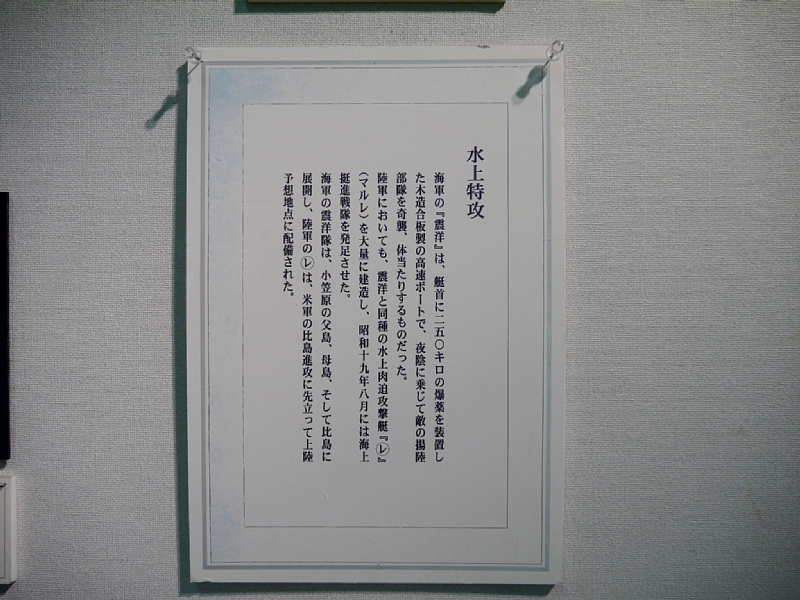 水上特攻
海軍の『震洋』は、艇首に二五〇キロの爆薬を装置し
た木造合板製の高速ボートで、夜陰に乗じて敵の揚陸
部隊を奇襲、体当たりするものだった。
陸軍においても、震洋と同種の水上肉迫攻撃艇『㋹』
(マルレ)を大量に建造し、昭和十九年八月には海上
挺進戦隊を発足させた。
海軍の震洋隊は、小笠原の父島、母島、そして比島に
展開し、陸軍の㋹は、米軍の比島進攻に先立って上陸
予想地点に配備された。